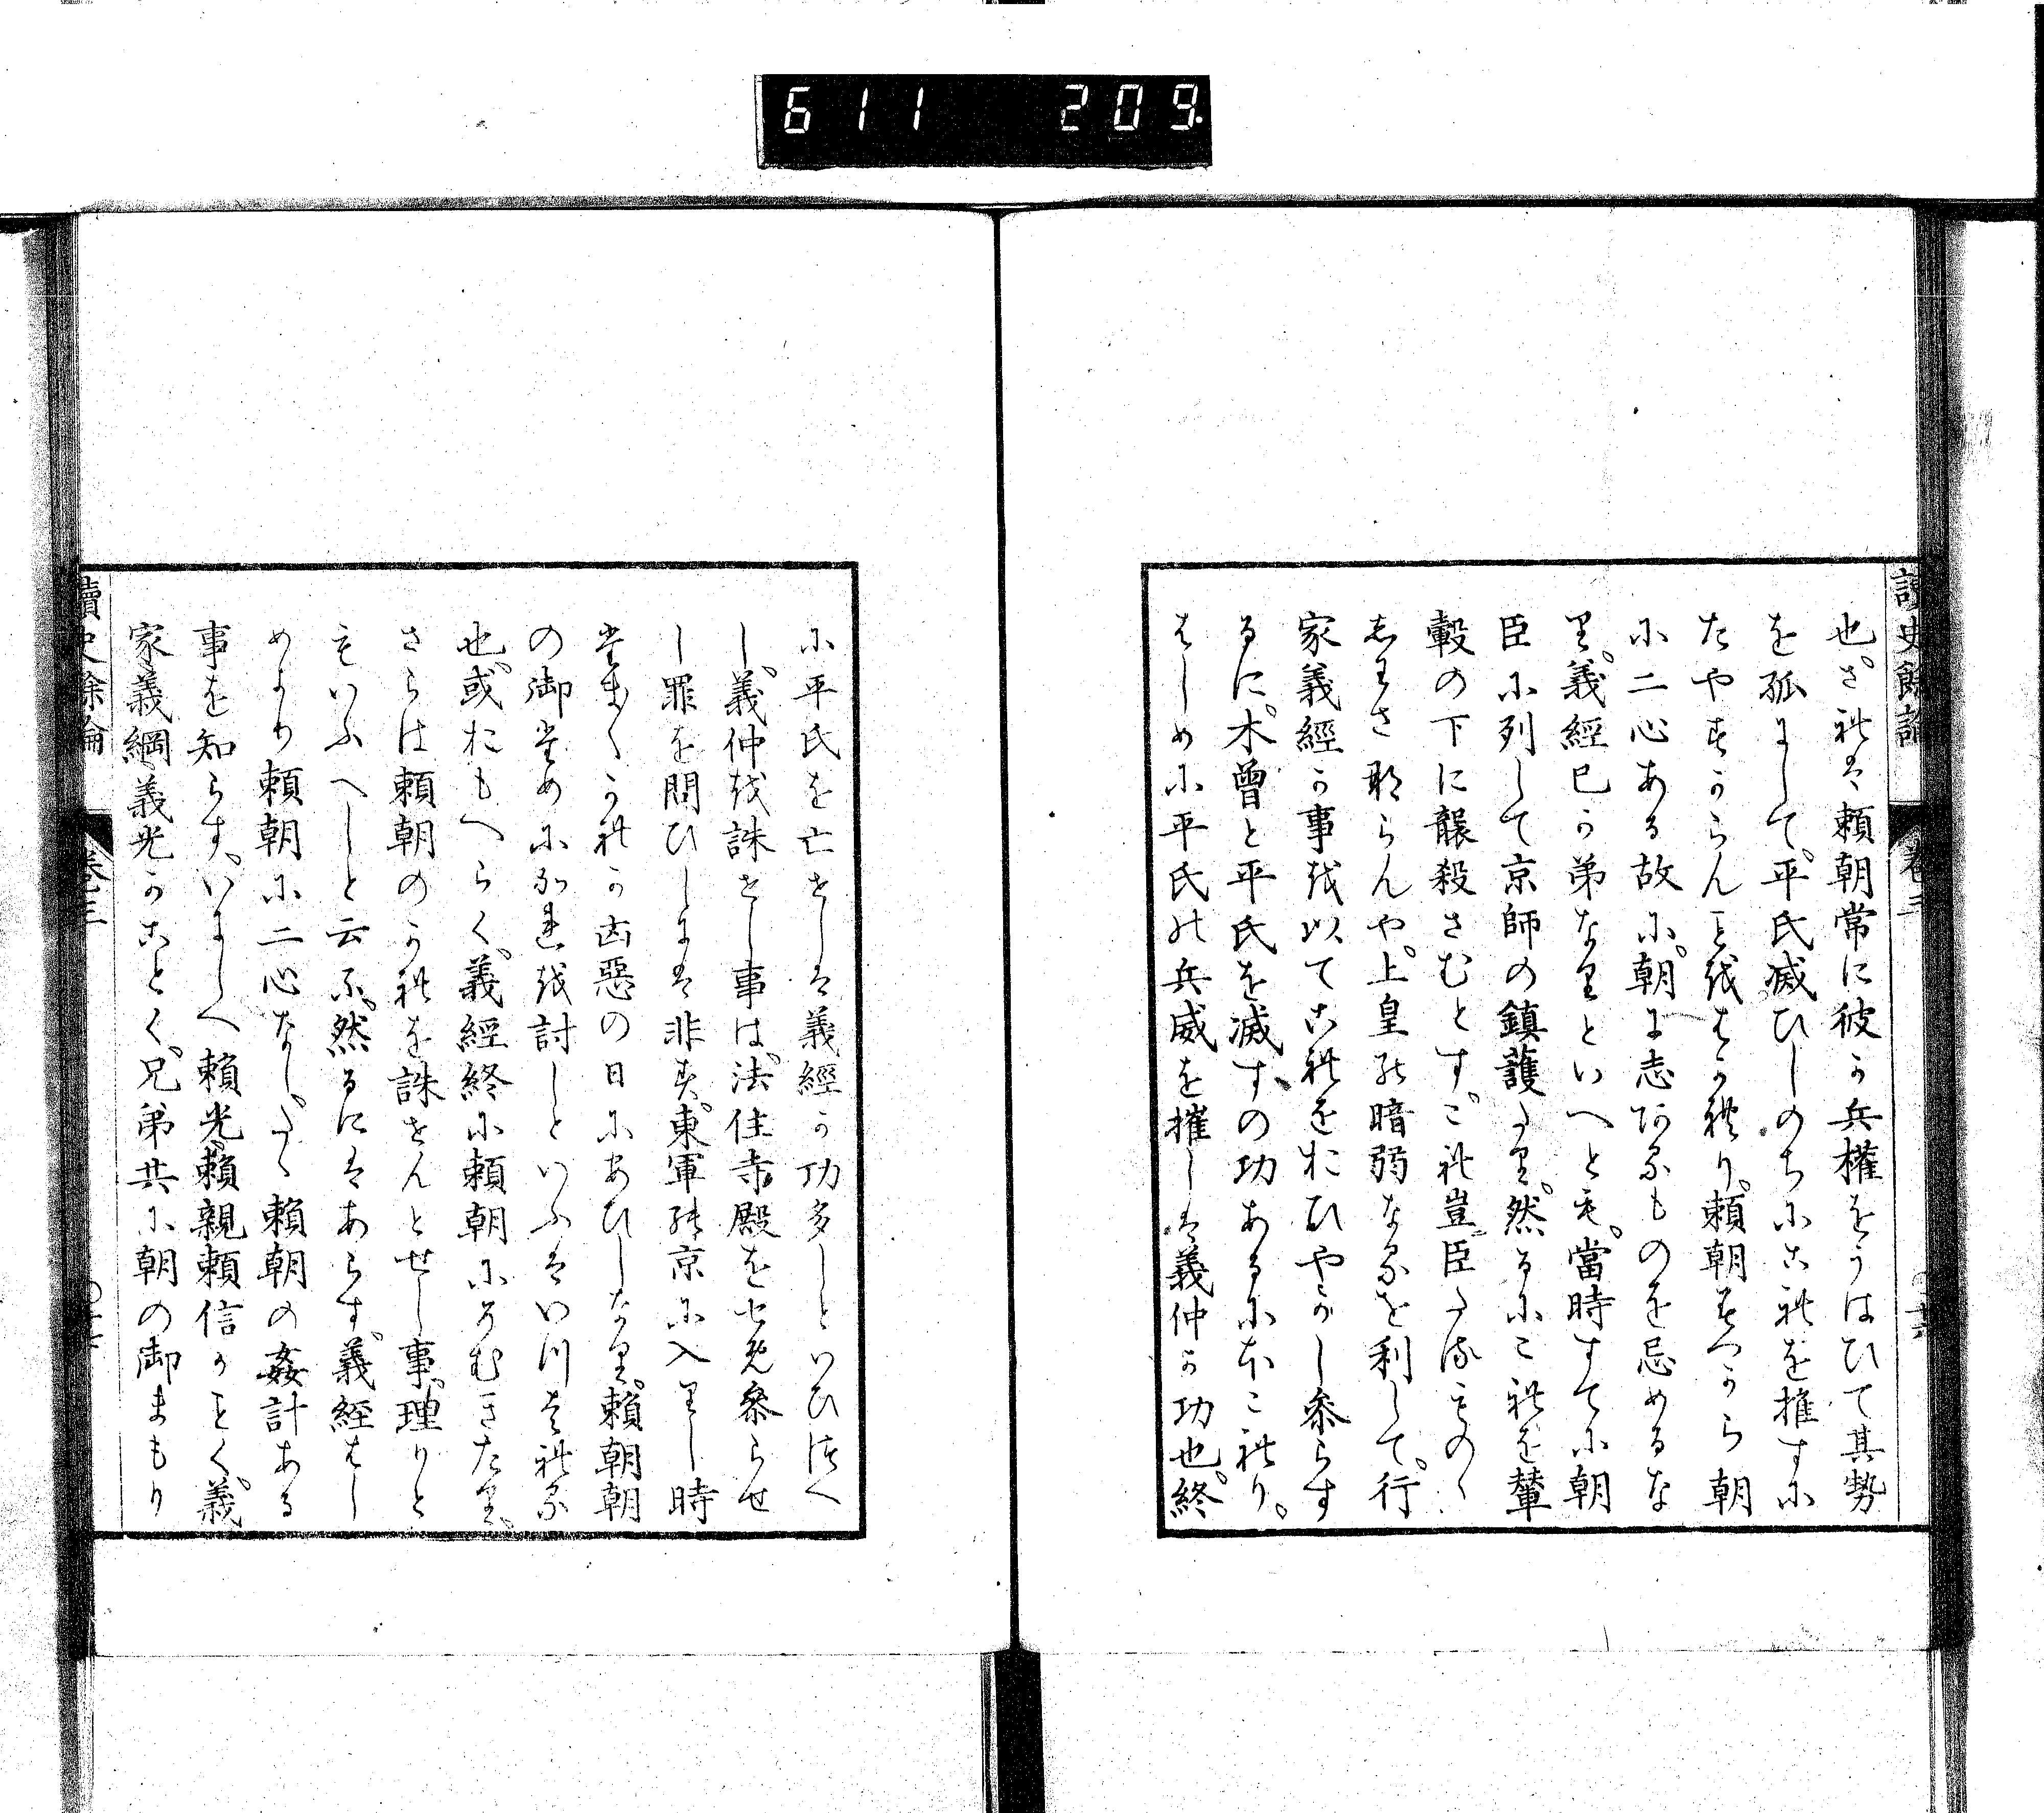 611 209
讀史餘論 卷三
也。されは頼朝常に彼か兵權をうはひて其勢
を孤にして。平氏滅ひしのちにこれを推すに
たやすからんことをはかれり。頼朝みつから朝
に二心ある故に。朝に志あるものを忌めるな
り。義經已か弟なりといへとも。當時すてに朝
臣に列して京師の鎮護たり。然るにこれを輦
轂の下に襲殺さむとす。これ豈臣たるものゝ
しわさならんや。上皇の暗弱なるを利して。行
家義經か事を以てこれをおひやかし参らす
るに。木曾と平氏を滅すの功あるにおこれり。
はしめに平氏の兵威を摧しは義仲か功也。終
に平氏を亡せしは義經か功多しといひつへ
し。義仲を誅せし事は。法住寺殿をせめ参らせ
し罪を問ひしには非す。東軍の京に入りし時
たま〳〵かれか凶惡の日にあひしなり。頼朝朝
の御ために仇を討しといふはいつはれる
也。或おもへらく。義經終に頼朝にそむきたり。
さらは頼朝のかれを誅せんとせし事。理りと
もいふへしと云ふ。然るにはあらす。義経はし
めより頼朝に二心なし。たゝ頼朝の姦計ある
事を知らす。いにしへ頼光。頼親頼信かことく。義
家義綱義光かことく。兄弟共に朝の御まもり
讀史餘論 卷三